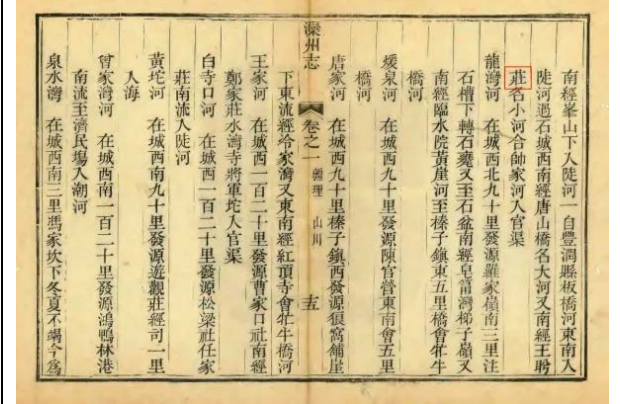 南經峯山下入陡河一自豐潤縣板橋河東南入
陡河過石城西南經唐山橋名大河又南經王盻
莊名小河合帥家河入官渠
龍灣河 在城西北九十里發源羅家嶺南三里注
石槽下轉石𥕢又至石盆南經皁莆灣梯子嶺又
南經臨水院黃崖河至榛子鎮東五里橋會牤牛
橋河
煖泉河 在城西九十里發源陳官營東南會五里
橋河
唐家河 在城西九十里榛子鎮西發源狼窩鋪崖
灤州志 卷之一 疆理 山川 十五
下東流經冷家灣又東南經紅頂寺會牤牛橋河
王家河 在城西一百二十里發源曹家口社南經
鄭家莊水灣寺將軍坨入官渠
白寺口河 在城西一百二十里發源松梁社任家
莊南流入陡河
黃坨河 在城西南九十里發源遊觀莊經司一里
入海
曾家灣河 在城西南一百二十里發源鴻鴨林港
南流至濟民場入潮河
泉水灣 在城西南三里馮家坎下冬夏不竭今爲